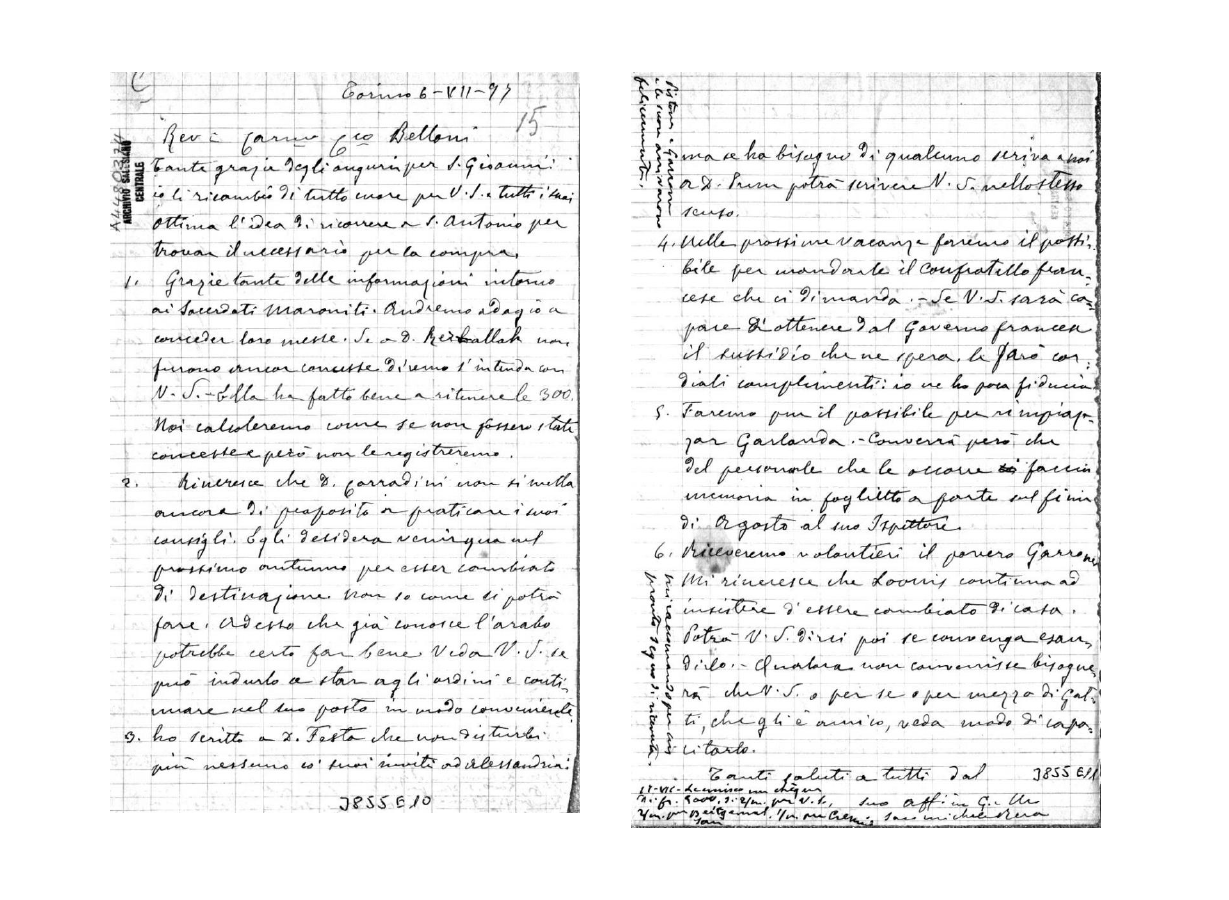 Torino 6-VII-97
15
ARCHIVIO SALESIANO
CENTRALE
Rev. Carmo Belloni
Tante grazie degli auguri per S. Giovanni
io li ricambio di tutto cuore per V. S. e tutti i suoi
Ottima l'idea di ricorrere a S. Antonio per
trovar il necessario per la compra.
1. Grazie tante delle informazioni intorno
ai Sacerdoti Maroniti. Andremo adagio a
conceder loro messe. Se a D. Rezkallah non
furono ancor concesse diremo s'intenda con
V. S. - Ella ha fatto bene a ritenere le 300.
Noi calcoleremo come se non fossero state
concesse e però non le registreremo.
2. Rincresce che D. Corradini non si metta
ancora di proposito a praticare i suoi
consigli. Egli desidera venir qua nel
prossimo autunno per esser cambiato
di destinazione. Non so come si potrà
fare. Adesso che già conosce l'arabo
potrebbe certo far bene. Veda V. S. se
può indurlo a star agli ordini e conti-
nuare nel suo posto in modo conveniente.
3. ho scritto a D. Festa che non disturbi
più nessuno co' suoi inviti ad Alessandria:
3855 E 10
Pistoni e Garrone
e la suora arrivarono
felicemente.
ma se ha bisogno di qualcuno scriva a noi
a D. potrà scrivere V. S. nello stesso
senso.
4. Nelle prossime vacanze faremo il possi-
bile per mandarle il Confratello fran-
cese che ci dimanda. - Se V. S. sarà ca-
pace d'ottenere dal Governo francese
il sussidio che ne spera, le farò cor-
diali complimenti: io ne ho poca fiducia
5. Faremo pur il possibile per rimpiaz-
zar Garlanda. - Converrà però che
del personale che le occorre faccia
memoria in foglietto a parte sul finir
di Agosto al suo Ispettore.
6. Riceveremo volontieri il povero Garrone
Mi rincresce che Loovis continua ad
insistere d'essere cambiato di casa.
Potrà V. S. dirci poi se convenga esau-
dirlo. - Qualora non convenisse bisogne-
rà che V. S. o per se o per mezzo di Gat-
ti, che gli è amico, veda modo di capa-
citarlo.
mi raccomando per un
pronto segno di ricevuta.
Tanti saluti a tutti dal
3855 E 11
suo affm C. M.
17-VII- un chèque
di fr. 9000, per V. S.,
per Beitgemal, per Cremis.